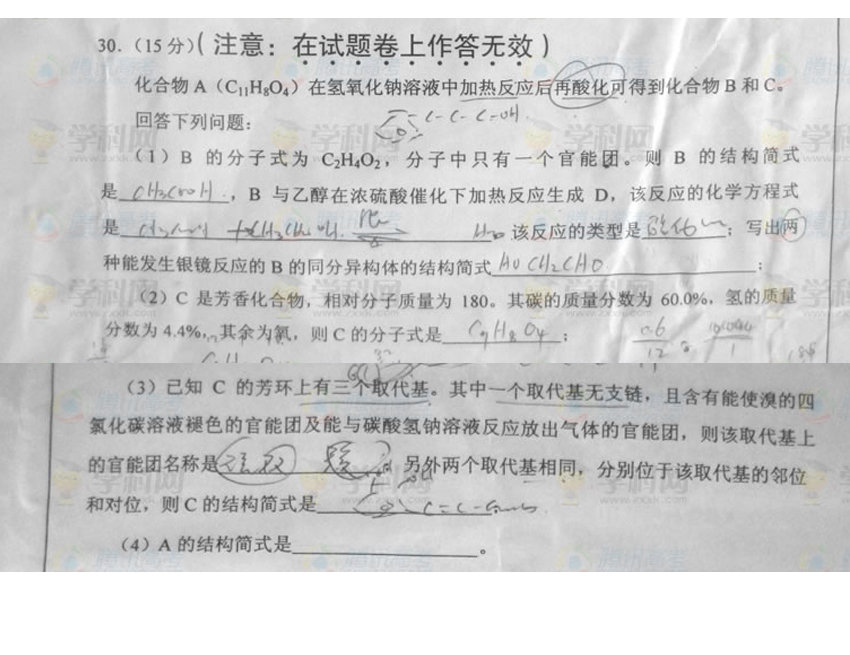 30.（15分）（注意：在试题卷上作答无效）
化合物 A（C₁₁H₈O₄）在氢氧化钠溶液中加热反应后再酸化可得到化合物 B 和 C。
回答下列问题： C-C-C-OH
（1）B 的分子式为 C₂H₄O₂，分子中只有一个官能团。则 B 的结构简式
是 CH₃COOH ，B 与乙醇在浓硫酸催化下加热反应生成 D，该反应的化学方程式
是 该反应的类型是 ；写出两
种能发生银镜反应的 B 的同分异构体的结构简式 HOCH₂CHO ；
（2）C 是芳香化合物，相对分子质量为 180。其碳的质量分数为 60.0%，氢的质量
分数为 4.4%，其余为氧，则 C 的分子式是 C₉H₈O₄ ；
（3）已知 C 的芳环上有三个取代基。其中一个取代基无支链，且含有能使溴的四
氯化碳溶液褪色的官能团及能与碳酸氢钠溶液反应放出气体的官能团，则该取代基上
的官能团名称是 另外两个取代基相同，分别位于该取代基的邻位
和对位，则 C 的结构简式是
（4）A 的结构简式是 。